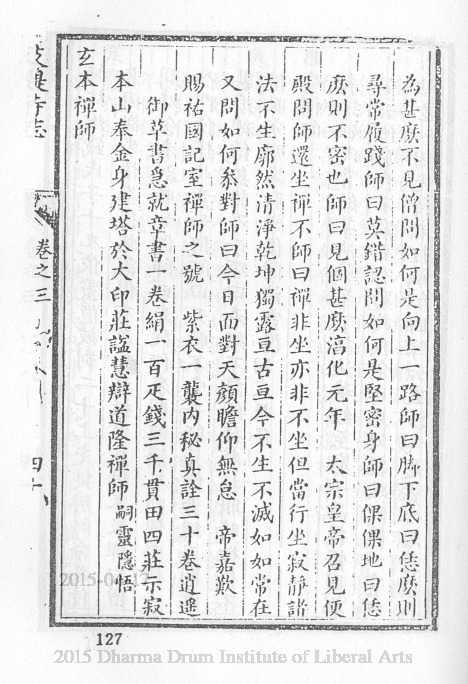 為甚麼不見僧問如何是向上一路師曰脚下底曰恁麼則
尋常履踐師曰莫錯認問如何是堅密身師曰倮倮地曰恁
麽則不密也師曰見個甚麽淳化元年 太宗皇帝召見便
殿問師還坐禪不師曰禪非坐亦非不坐但當行坐寂靜諸
法不生廓然清淨乾坤獨露亘古亘今不生不滅如如常在
又問如何叅對師曰今日面對天顏瞻仰無怠 帝嘉歎
賜祐國記室禪師之號 紫衣一襲內秘真詮三十卷逍遥
御草書急就章書一卷絹一百疋錢三千貫田四莊示寂
本山奉金身建塔於大印莊謚慧辯道隆禪師 嗣靈隱悟
玄本禪師
寺志
卷之三
四十
127
2015-04-17
2015 Dharma Drum Institute of Liberal Arts